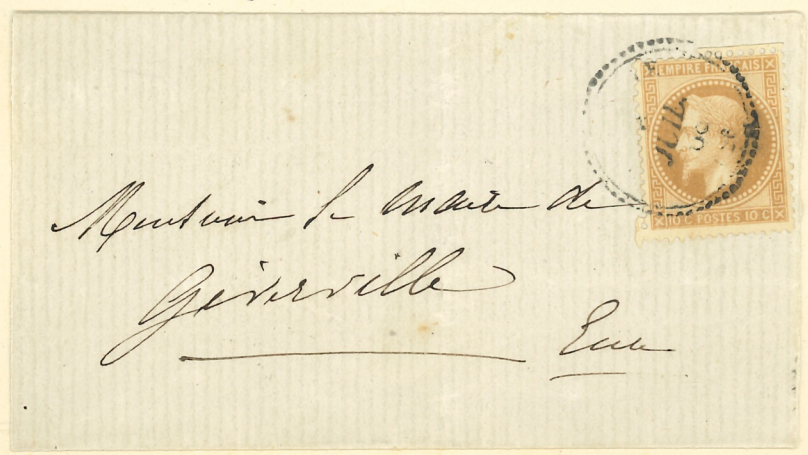 EMPIRE FRANÇAIS
JUIL
10 C POSTES 10 C
Monsieur le Maire de
Giverville
Eure